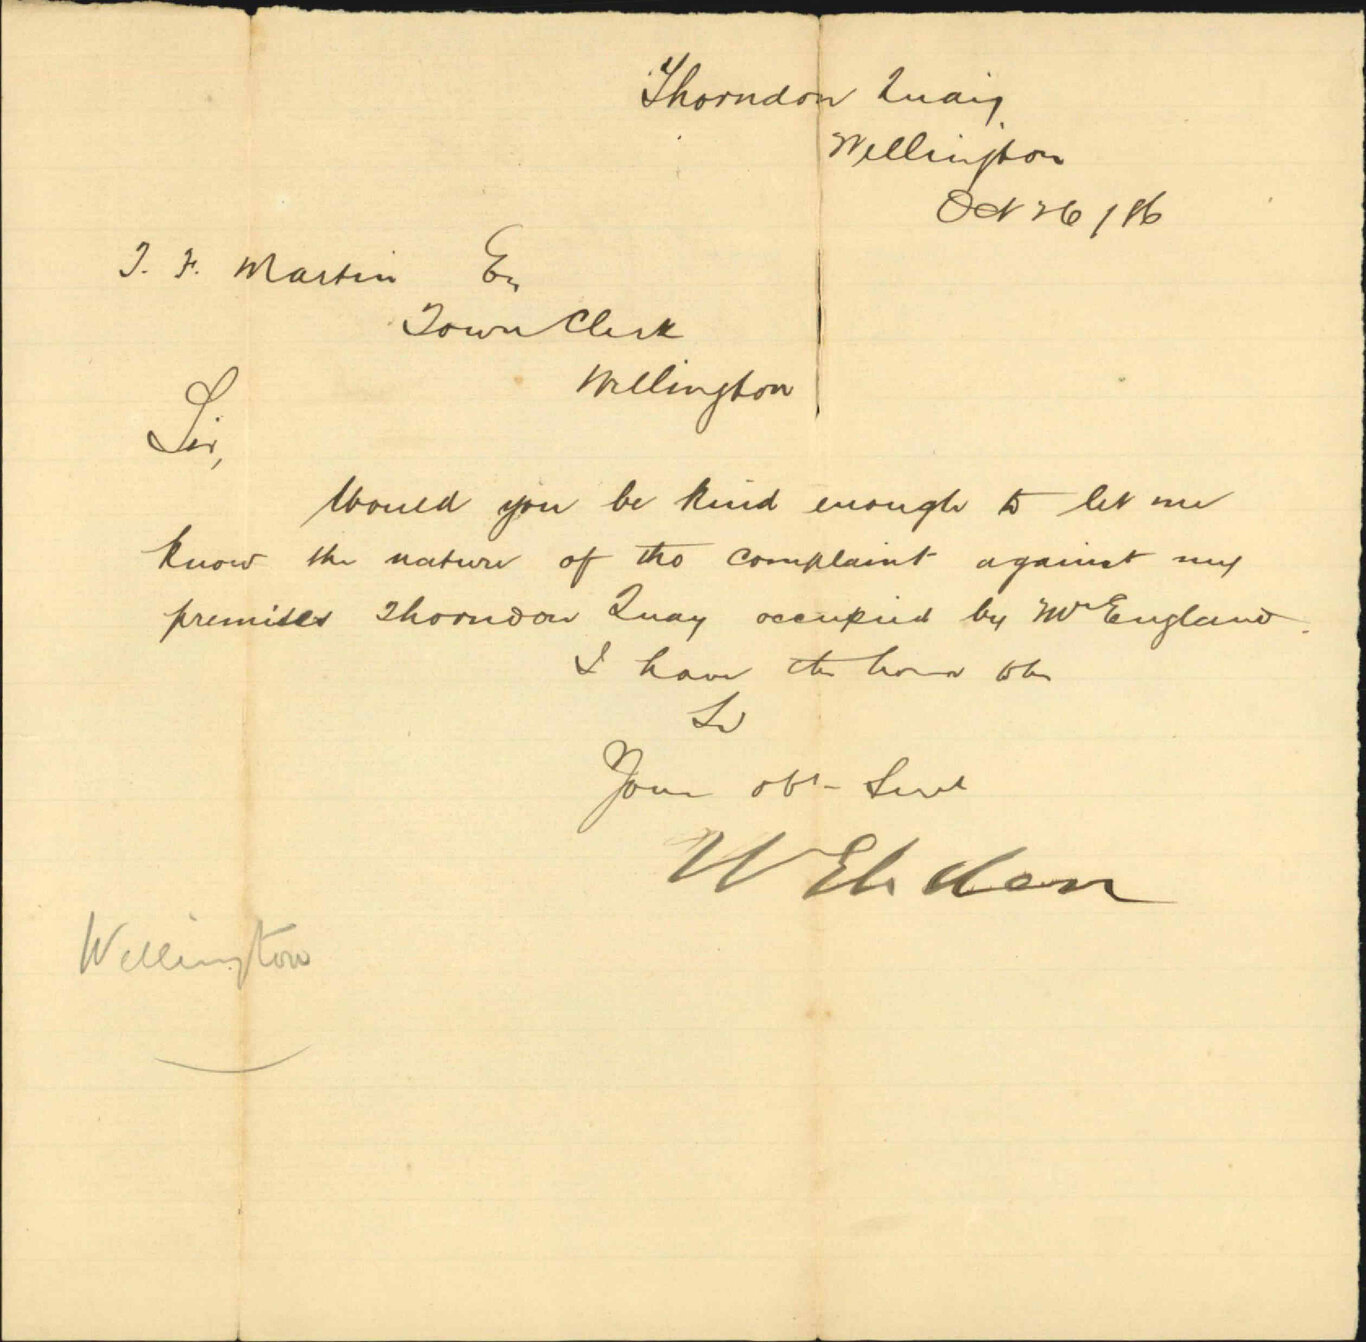 Thorndon Quay
Wellington
Oct 26 / 86
T. F. Martin Esq
Town Clerk
Wellington
Sir,
Would you be kind enough to let me
know the nature of the complaint against my
premises Thorndon Quay occupied by Mr England.
I have the honor to be
Sir
Your obt Servt
W Ebden
Wellington